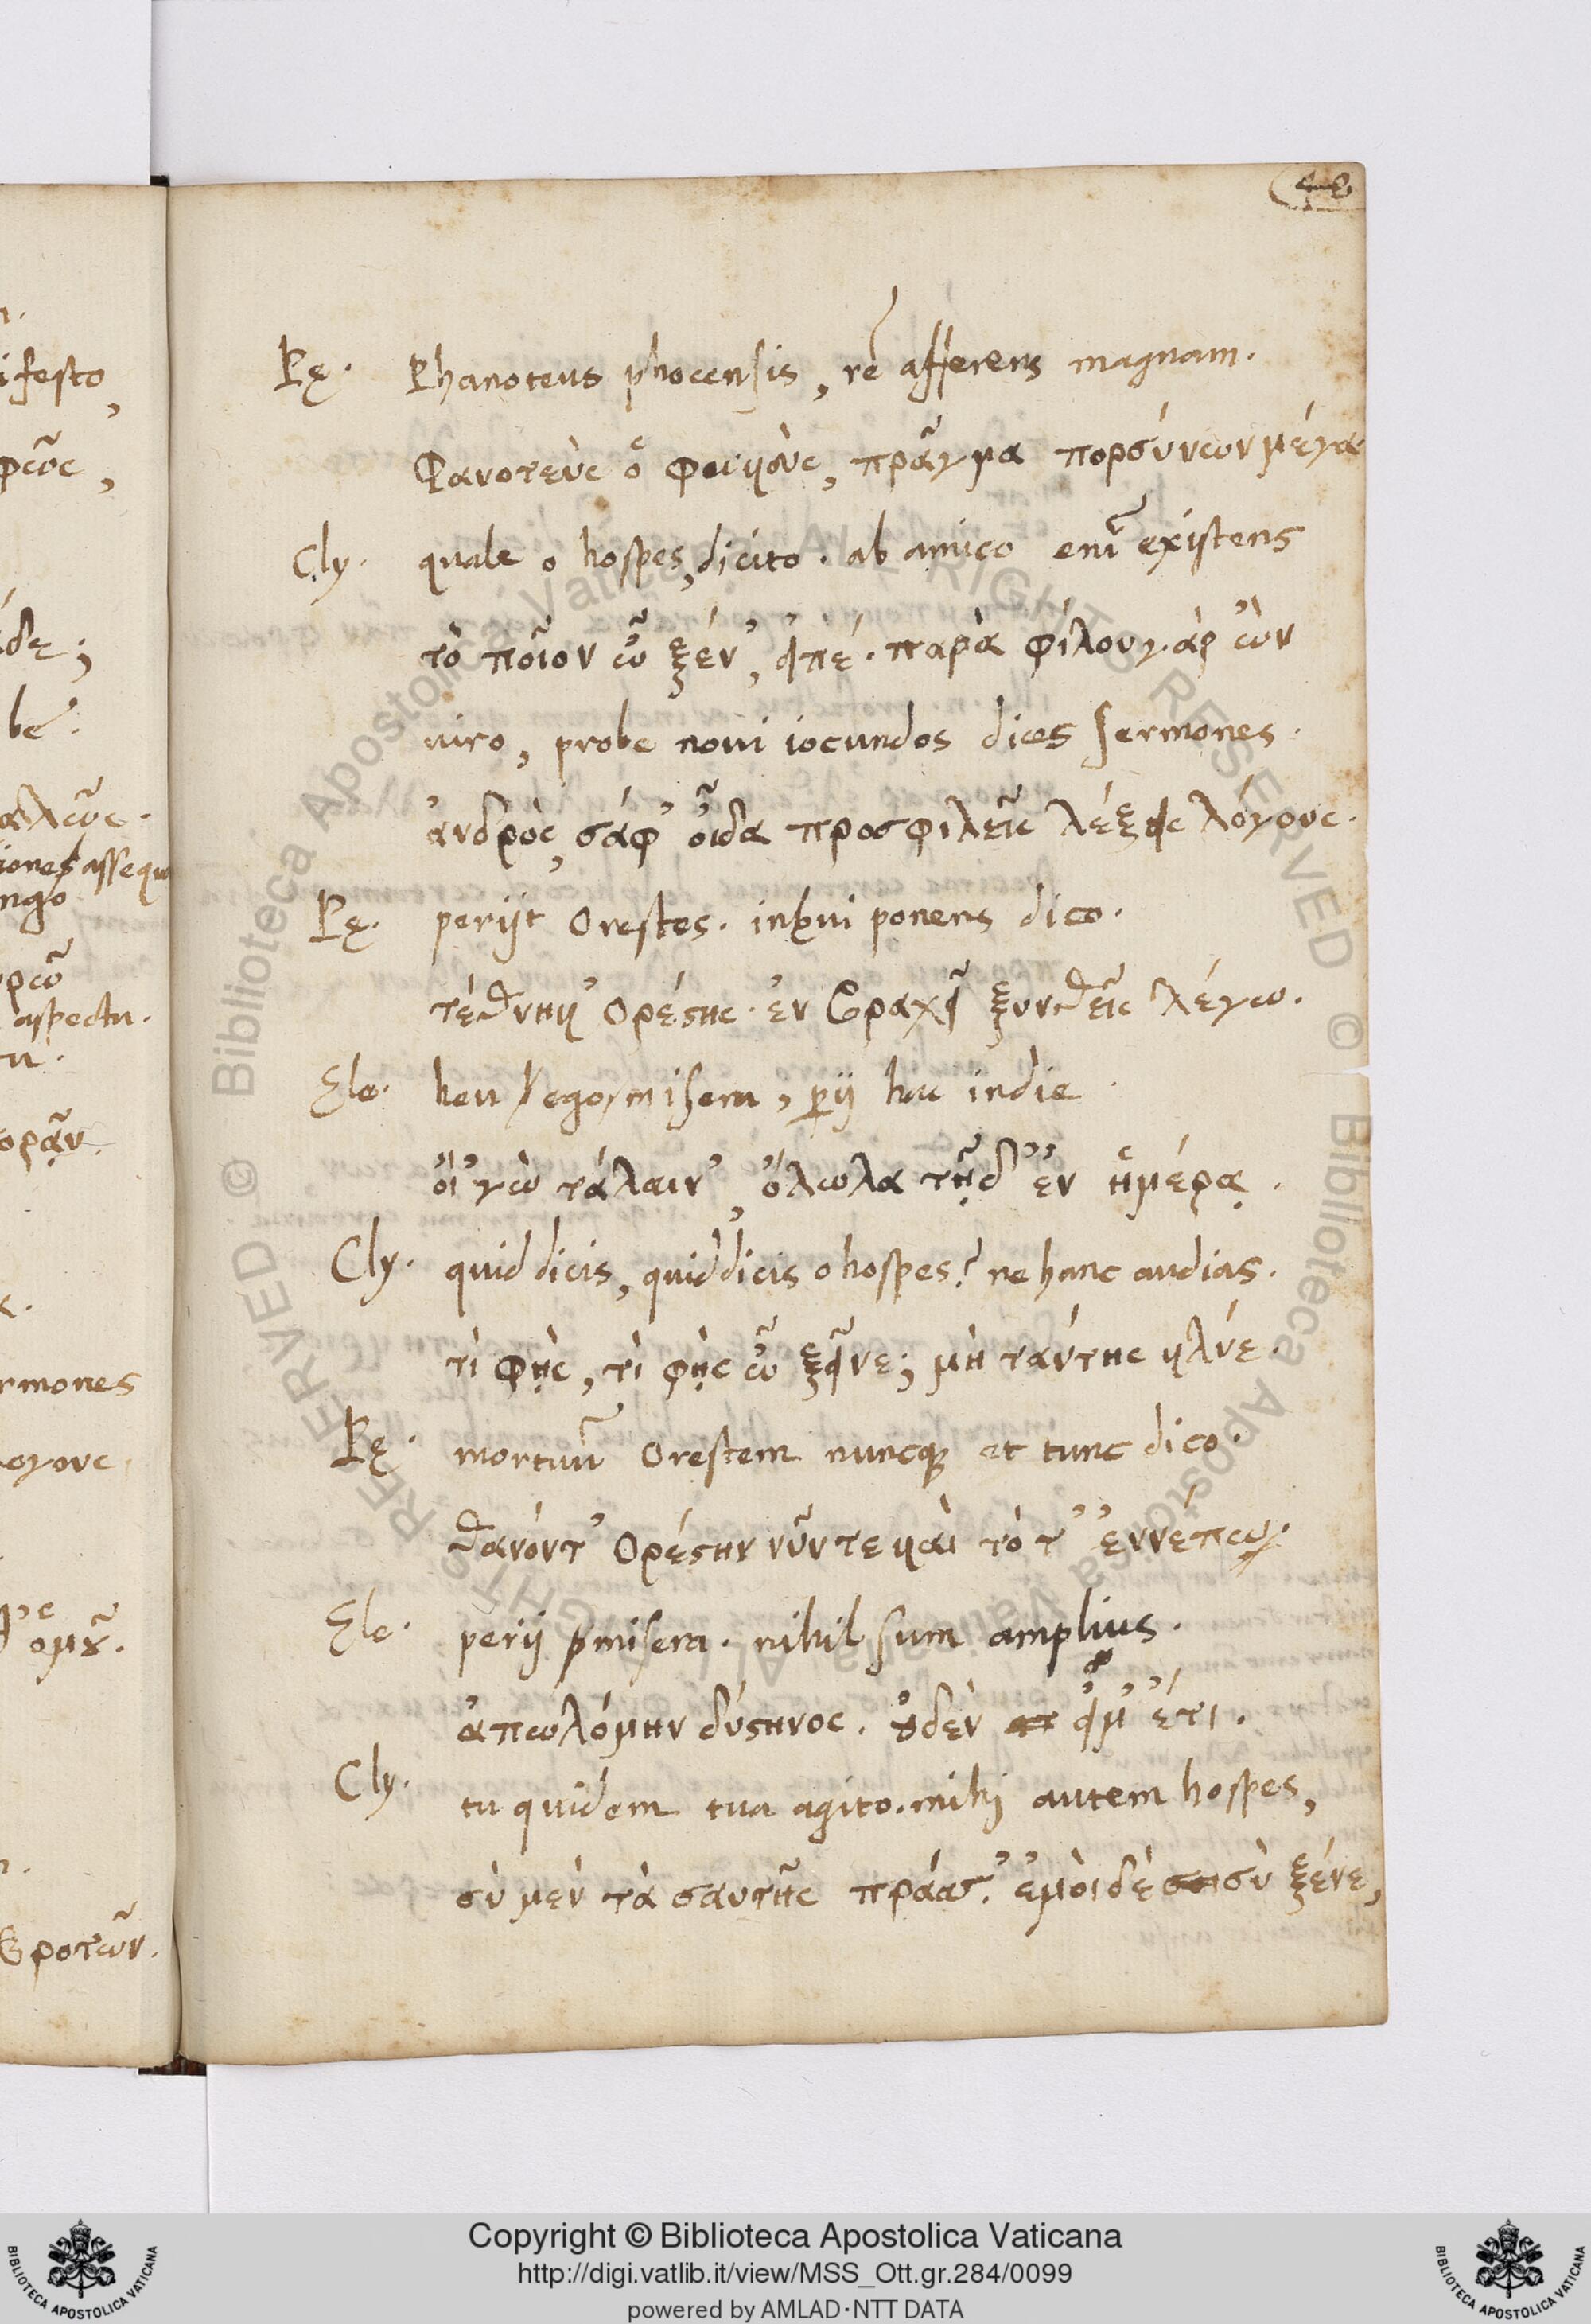 Pę. Phanoteus phocensis, rē afferens magnam.
Φανοτεὺς ὁ φωκεὺς, πρᾶγμα πορσύνων μέγα
Cly. quale o hospes, dicito. ab amico enī existens
τὸ ποῖον ὦ ξέν', εἰπέ. παρὰ φίλου γὰρ ὢν
viro, probe novi iocundos dices sermones.
ἀνδρὸς, σάφ' οἶδα προσφιλεῖς λέξεις λόγους.
Pę. perijt Orestes. inbrevi ponens dico.
τέθνηκ' Ορέστης. ἐν βραχεῖ ξυνθεὶς λέγω.
Ele. heu ego misera, perij hac indie.
οἲ 'γὼ τάλαιν', ὄλωλα τῇδ' ἐν ἡμέρᾳ.
Cly. quid dicis, quid dicis o hospes? ne hanc audias.
τὶ φῂς, τὶ φῂς ὦ ξεῖνε; μὴ ταύτης κλύε.
Pę. mortuū Orestem nuncque et tunc dico.
θανόντ' Ορέστην νῦν τε καὶ τὸτ' ἐννέπω.
Ele. perij misera. nihil sum amplius.
ἀπωλόμην δύστηνος. οὐδὲν εἴμ' ἔτι.
Cly. tu quidem tua agito. mihi autem hospes,
σὺ μὲν τὰ σαυτῆς πράσσ'. ἐμὸι δὲ σὺ ξένε,
ifesto,
φῶς,
αλῶς.
iones assequ
ngo
ρῶ
aspectu.
ορᾷν.
rmones
ογους
ὁμοῦ.
βροτῶν.
© Biblioteca Apostolica Vaticana ALL RIGHTS RESERVED © Biblioteca Apostolica Vaticana ALL RIGHTS RESERVED
BIBLIOTECA APOSTOLICA VATICANA
Copyright © Biblioteca Apostolica Vaticana
http://digi.vatlib.it/view/MSS_Ott.gr.284/0099
powered by AMLAD·NTT DATA
BIBLIOTECA APOSTOLICA VATICANA